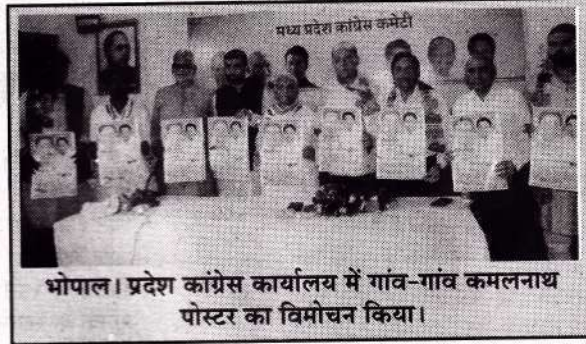 मध्य प्रदेश कांग्रेस कमेटी
भोपाल। प्रदेश कांग्रेस कार्यालय में गांव-गांव कमलनाथ
पोस्टर का विमोचन किया।